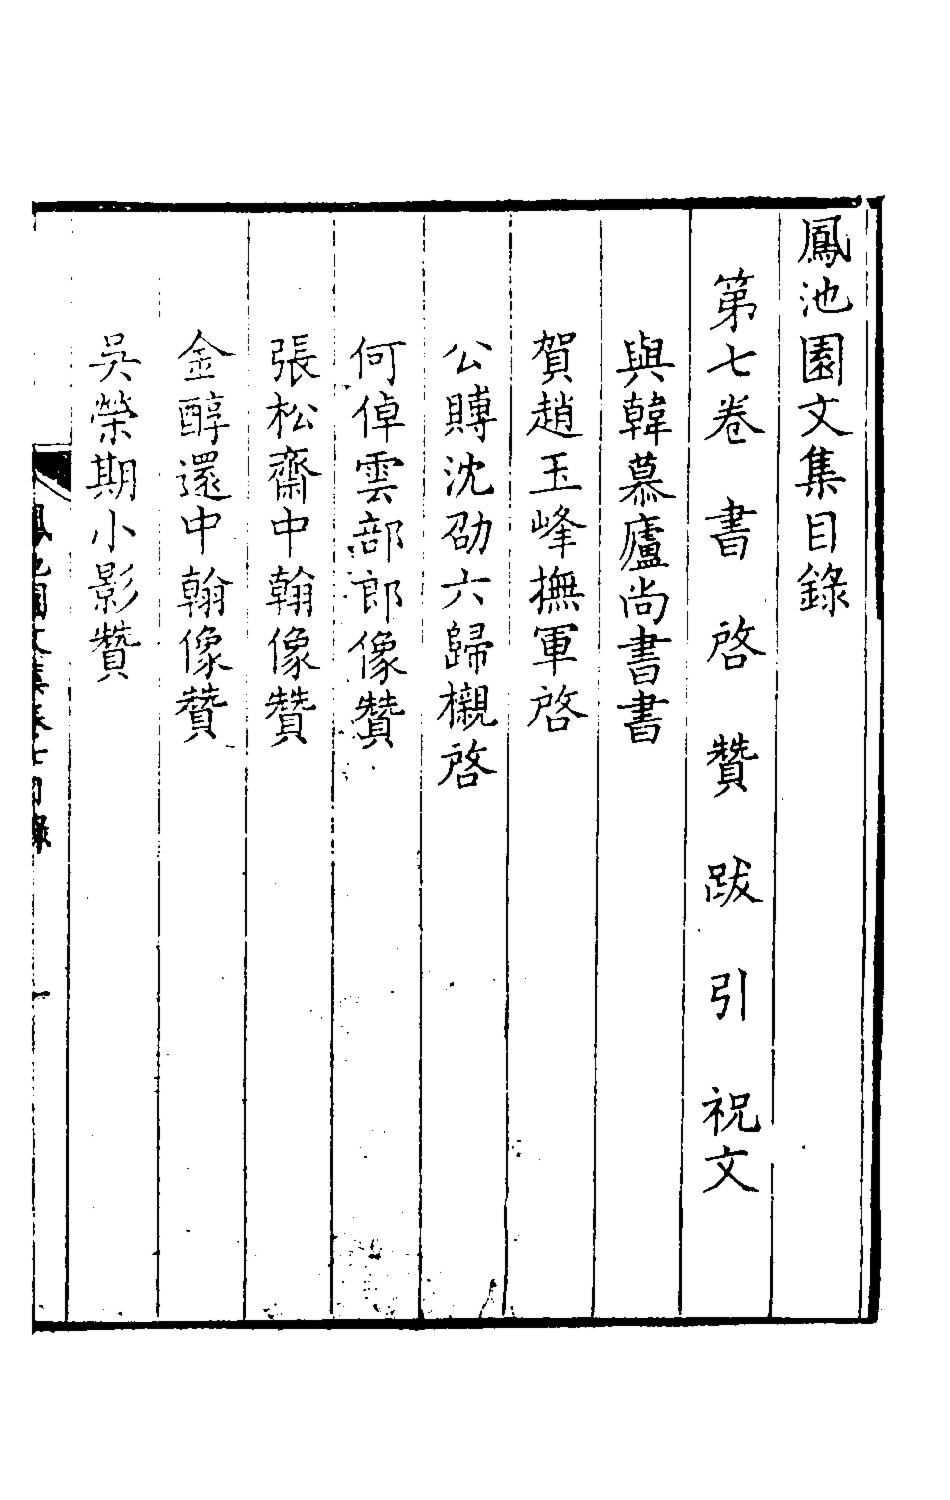 鳳池園文集目錄
第七卷　書　啓　贊　跋　引　祝文
與韓慕廬尚書書
賀趙玉峰撫軍啓
公賻沈劭六歸櫬啓
何倬雲部郎像贊
張松齋中翰像贊
金醇還中翰像贊
吳榮期小影贊
鳳池園文集卷七目錄　一